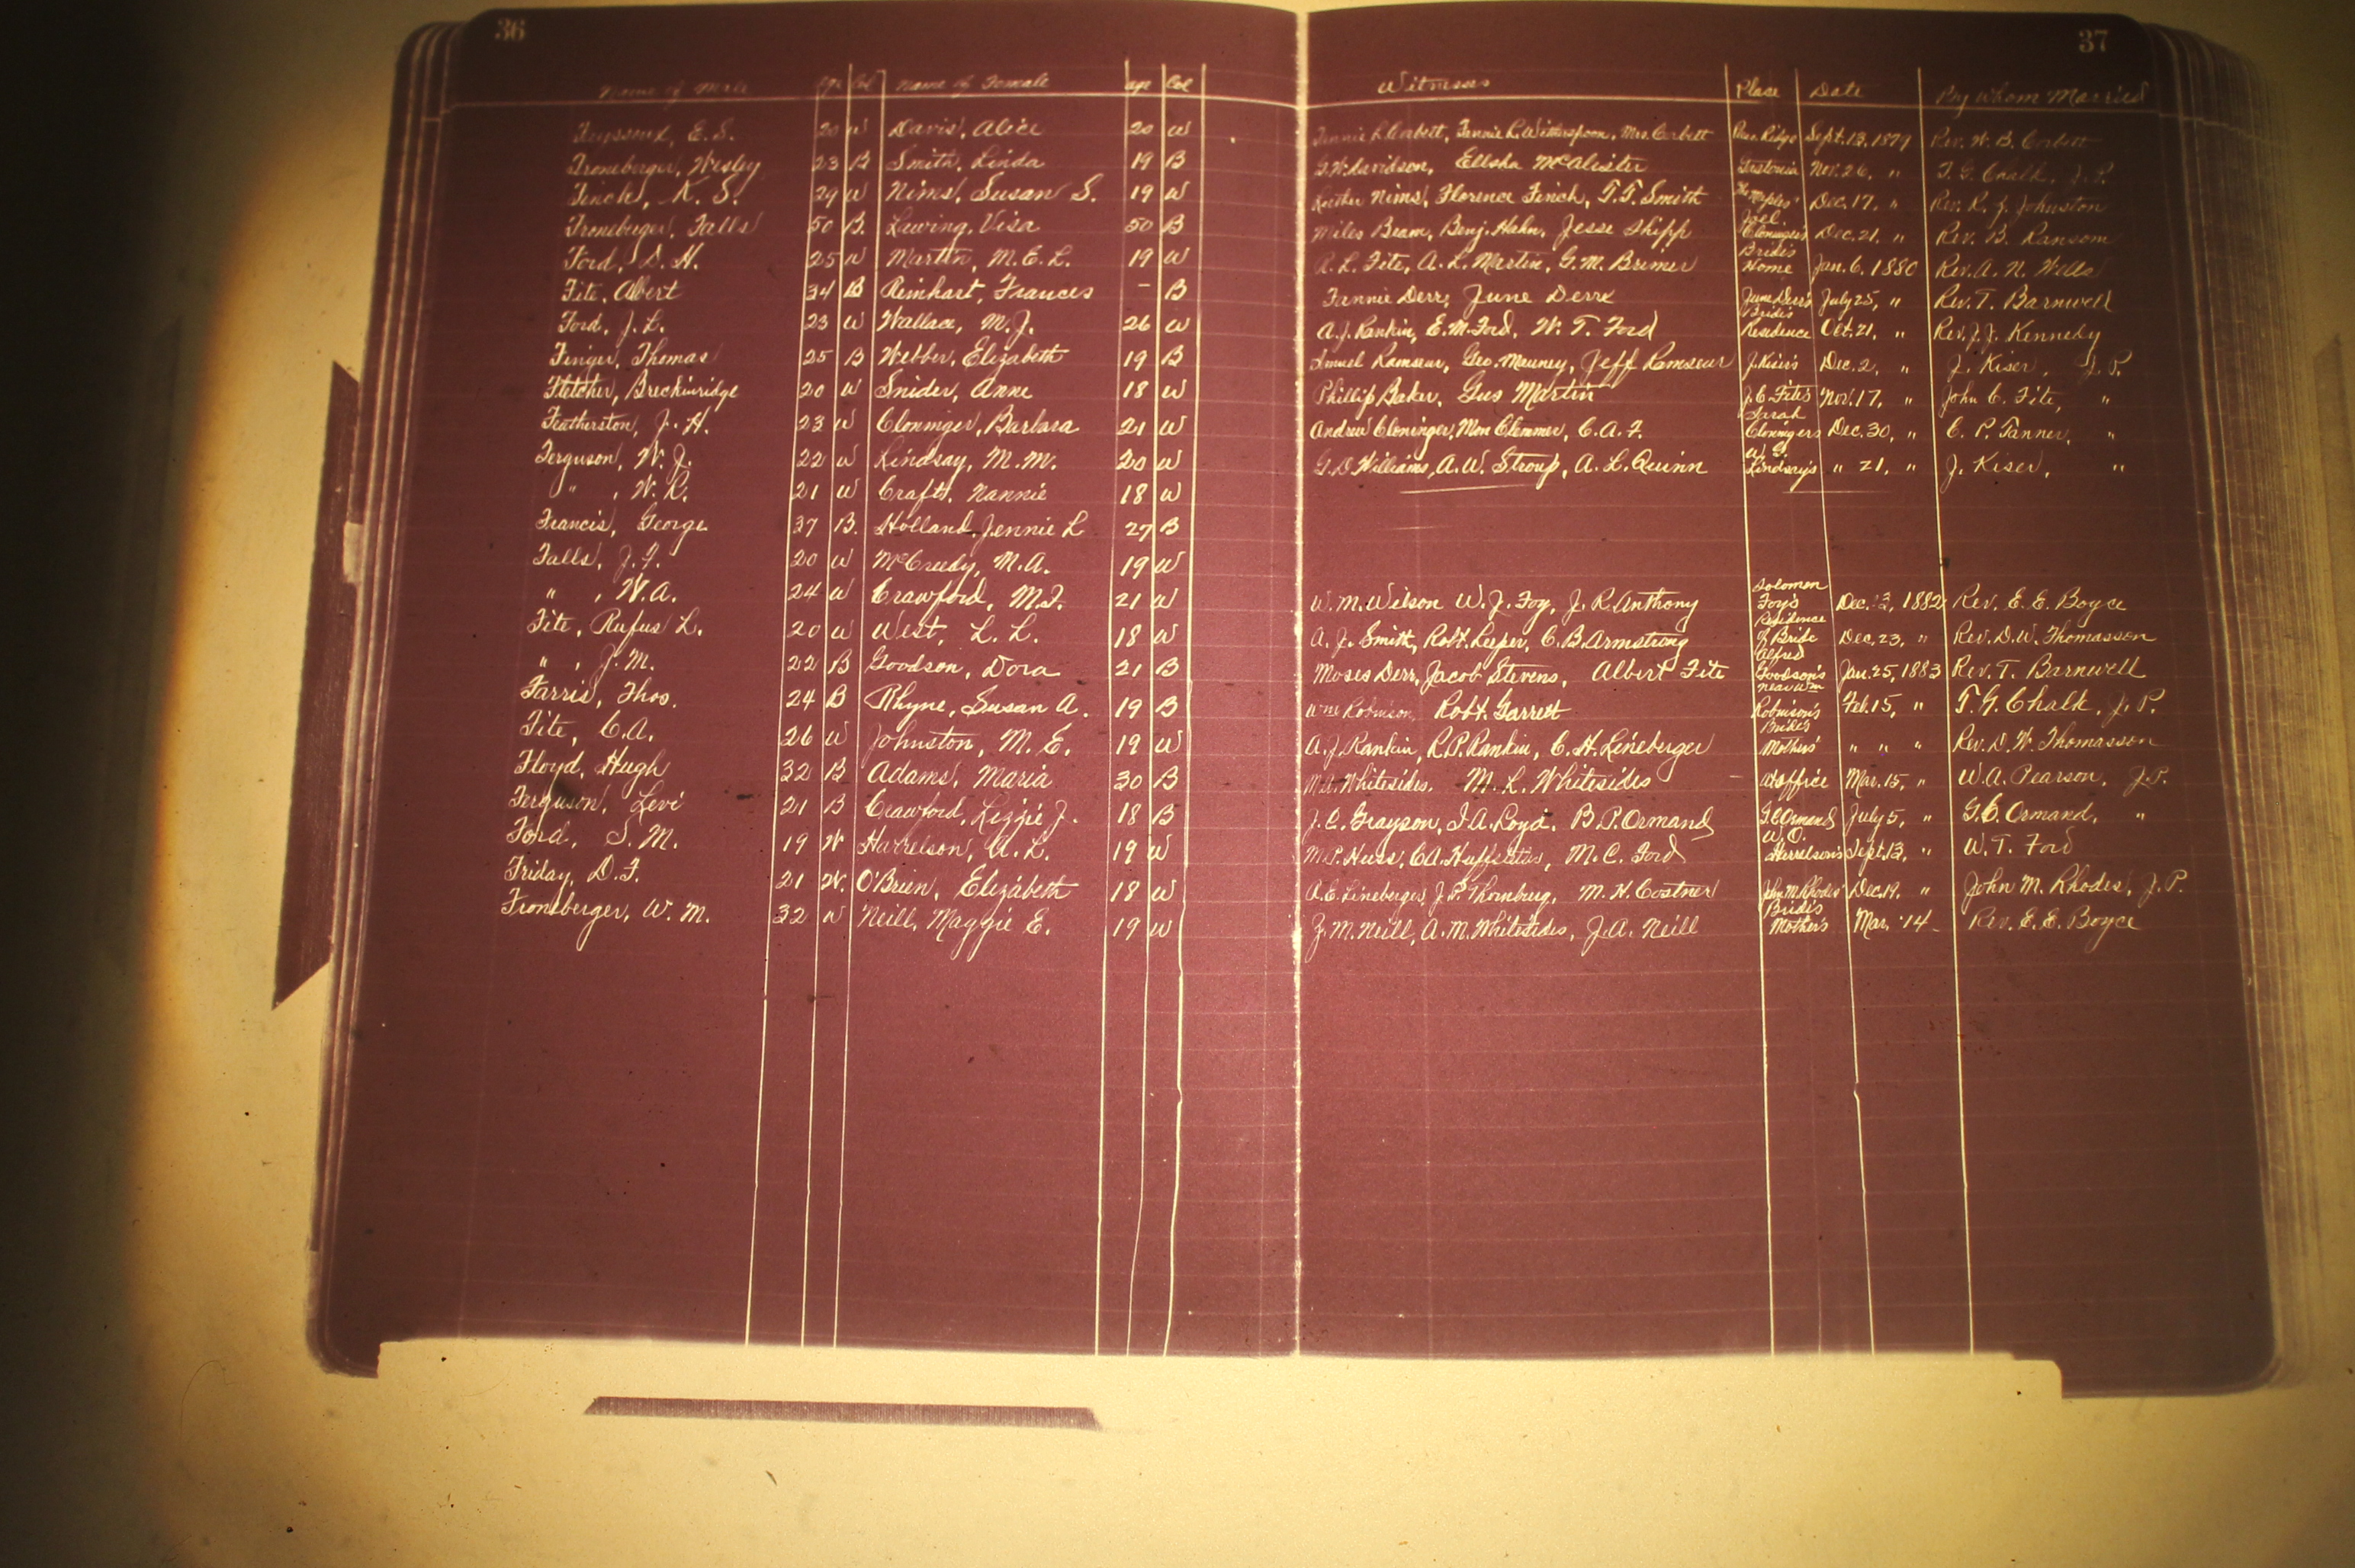 36 37
Name of Male Age Col Name of Female Age Col Witnesses Place Date By Whom Married
E. S. 20 W Davis, Alice 20 W Fannie L. Corbett, Fannie R. Witherspoon, Mrs. Corbett Ridge Sept. 13, 1879 Rev. W. B. Corbett
Froneberger, Wesley 23 B Smith, Linda 19 B G. W. Davidson, Elisha McAlister Gastonia Nov. 26, " T. G. Chalk, J. P.
Finch, K. S. 29 W Nims, Susan S. 19 W Nims, Florence Finch, T. T. Smith The "Maples" Dec. 17, " Rev. R. Z. Johnston
Froneberger, Falls 50 B. Lawing, Visa 50 B Miles Beam, Benj. Hahn, Jesse Shipp Joel Cloninger's Dec. 21, " Rev. B. Ransom
Ford, D. H. 25 W Martin, M. E. L. 19 W R. L. Fite, A. L. Martin, G. M. Brimer Bride's Home Jan. 6, 1880 Rev. A. N. Wells
Fite, Albert 34 B Reinhart, Frances – B Fannie Derr, June Derr June Derr's July 25, " Rev. T. Barnwell
Ford, J. L. 23 W Wallace, M. J. 26 W A. J. Rankin, E. M. Ford, W. T. Ford Bride's Residence Oct. 21, " Rev. J. J. Kennedy
Finger, Thomas 25 B Webber, Elizabeth 19 B Ramseur, Geo. Mauney, Jeff Ramseur J. Kiser's Dec. 2, " J. Kiser, J. P.
Fletcher, Breckinridge 20 W Snider, Anne 18 W Phillip Baker, Gus Martin J. C. Fite's Nov. 17, " John C. Fite, "
Featherston, J. H. 23 W Cloninger, Barbara 21 W Andrew Cloninger, Mon Clemmer, C. A. F. Sarah Cloningers Dec. 30, " E. P. Tanner, "
Ferguson, W. J. 22 W Lindsay, M. M. 20 W G. D. Williams, A. W. Stroup, A. L. Quinn Lindsay's " 21, " J. Kiser, "
" , W. R. 21 W Craft, Nannie 18 W
Francis, George 37 B. Holland, Jennie L 27 B
Falls, J. F. 20 W McCreedy, M. A. 19 W
" , W. A. 24 W Crawford, M. J. 21 W W. M. Wilson W. J. Foy, J. R. Anthony Solomon Foy's Dec. 1882 Rev. E. E. Boyce
Fite, Rufus L. 20 W West, L. L. 18 W A. J. Smith, Robt. Leeper, C. B. Armstrong Residence of Bride Dec. 23, " Rev. D. W. Thomasson
" , J. M. 22 B Goodson, Dora 21 B Moses Derr, Jacob Stevens, Albert Fite Alfred Goodson's Jan. 25, 1883 Rev. T. Barnwell
Farris, Thos. 24 B Rhyne, Susan A. 19 B Wm Robinson, Robt. Garrett near Wm Robinson's Feb. 15, " T. G. Chalk, J. P.
Fite, C. A. 26 W Johnston, M. E. 19 W A. J. Rankin, R. P. Rankin, C. H. Lineberger Bride's Mother's " " " Rev. D. W. Thomasson
Floyd, Hugh 32 B Adams, Maria 30 B Whitesides, M. L. Whitesides at office Mar. 15, " W. A. Pearson, J. P.
Ferguson, Levi 21 B Crawford, Lizzie J. 18 B J. C. Grayson, J. A. Loyd, B. P. Ormand G. C. Ormand July 5, " G. C. Ormand, "
Ford, S. M. 19 W Harrelson, A. L. 19 W M. P. Huss, C. A. Huffstetler, M. C. Ford W. O. Harrelson's Sept. 13, " W. T. Ford
Friday, D. F. 21 W. O'Brien, Elizabeth 18 W A. C. Lineberger, J. P. Thornburg, M. H. Costner John M. Rhodes' Dec. 19, " John M. Rhodes, J. P.
Froneberger, W. M. 32 W Neill, Maggie E. 19 W J. M. Neill, A. M. Whitesides, J. A. Neill Bride's Mother's Mar. 14 Rev. E. E. Boyce